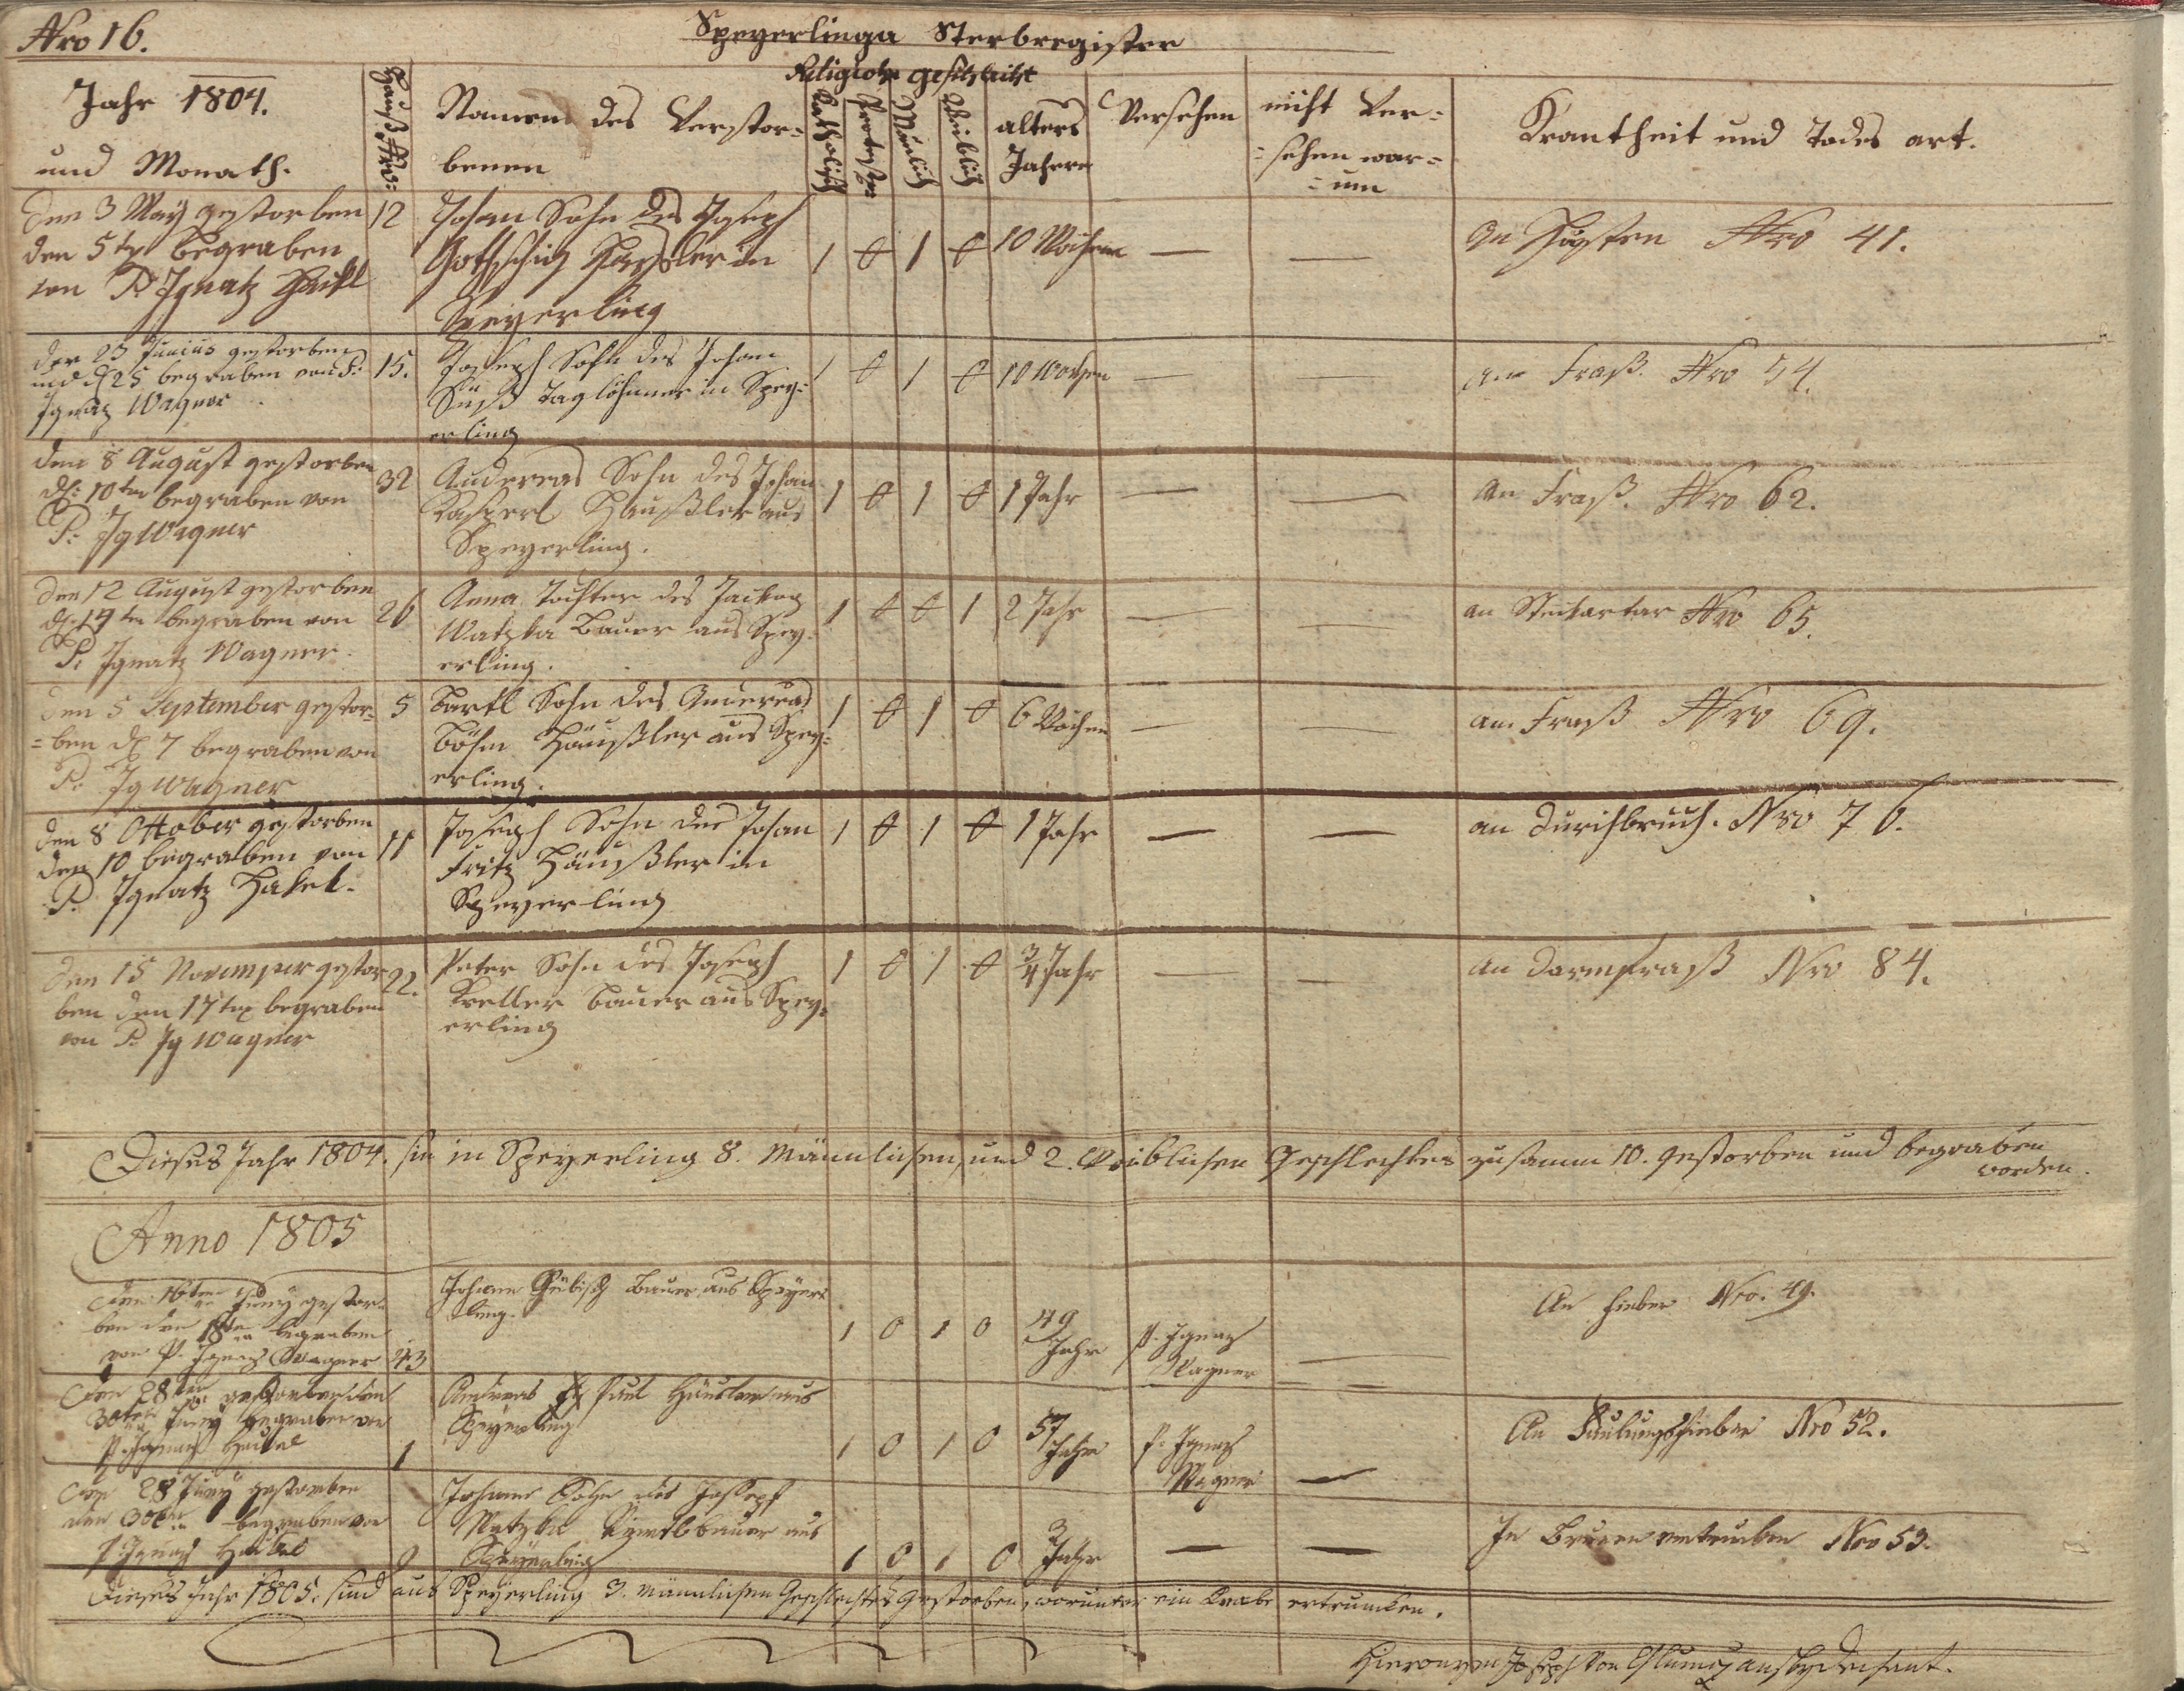 Nro 16.
Speyerlinga Sterbregister
Religion geschlecht
Jahr 1804.
und Monath.
Hauß Nro:
Namen des Verstor=
benen
Katholisch
Protest
Mänlich
Weiblich
alters
Jahren
Versehen
nicht Ver=
=sehen war=
=um
Krankheit und Todes art.
Den 3 May gestorben
den 5ten begraben
von P. Ignatz Haikl
12
Johan Sohn des Joseph
Häußler in
Speyerling
1 0 1 0
10 Wochen
— —
An Husten Nro 41.
der 23 Junius gestorben
und d 25 begraben von P:
Ignaz Wagner
15.
Joseph Sohn des Johan
Süß taglöhner in Spey=
erling
1 0 1 0
10 Wochen
— —
An Fraß. Nro 54.
den 8 August gestorben
d: 10ten begraben von
P: Ig Wagner
32
Andereas Sohn des Johan
Kasperl Haußler aus
Speyerling.
1 0 1 0
1 Jahr
— —
An Fraß. Nro 62.
den 12 August gestorben
d: 14ten begraben von
P: Ignatz Wagner
26
Anna Tochter des Jackob
Watzka Bauer aus Spey=
erling.
1 0 0 1
2 Jahr
— —
an Steckartar Nro 65.
den 5 September gestor=
=ben d 7 begraben von
P: Ig Wagner
5
Bartl Sohn des Andereas
Böhm Häußler aus Spey=
erling.
1 0 1 0
6 Wochen
— —
am Fraß Nro 69.
den 8 Ottober gestorben
den 10 begraben von
P. Ignatz Hakel.
11
Joseph Sohn des Johan
Fritz Häußler in
Speyerling
1 0 1 0
1 Jahr
— —
an durchbruch. Nro 76.
den 15 November gestor
ben den 17ten begraben
von P. Ig Wagner
22.
Peter Sohn des Joseph
Kreller Bauer aus Spey=
erling
1 0 1 0
3/4 Jahr
— —
an darmfraß Nro 84.
Dieses Jahr 1804. sin in Speyerling 8. Männlichen, und 2. Weiblichen Geschlechtes zusamm 10. gestorben und begraben
worden.
Anno 1805
den 16ten Juny gestor=
ben den 18ten begraben
von P. Ignaz Wagner
23
Johann Bauer aus Speyer=
ling.
1 0 1 0
49
Jahr
P. Ignaz
Wagner
—
An Fieber Nro. 49.
den 28ten gestorben den
30ten Juny begraben von
P. Ignaz Haikel
1
Andreas Paul Häusler aus
Speyerling
1 0 1 0
57
Jahr
P. Ignaz
Wagner
—
An Faulungsfieber Nro 52.
den 28 Juny gestorben
den 30ten begraben von
P. Ignaz Haikel
9
Johann Sohn des Joseph
Watzka bauer aus
Speyerling
1 0 1 0
3
Jahr
— —
In Brunnen ertrunken Nro 53.
Dieses Jahr 1805. sind aus Speyerling 3. männlichen Geschlechtes gestorben, worunter ein Knabe ertrunken.
Hieronymus Joseph von